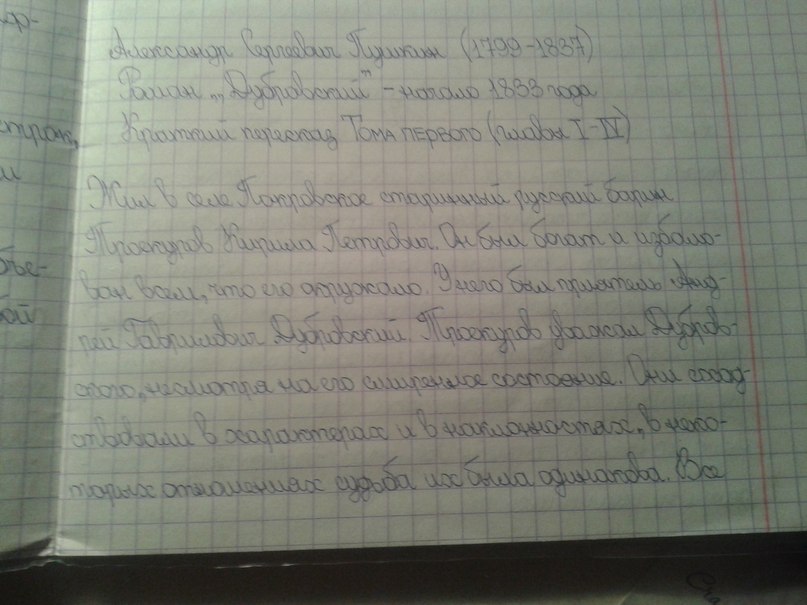 Александр Сергеевич Пушкин (1799-1837)
Роман "Дубровский" - начало 1833 года
Краткий пересказ Тома первого (главы I-IV)
Жил в селе Покровское старинный русский барин
Троекуров Кирила Петрович. Он был богат и избало-
ван всем, что его окружало. У него был приятель Анд-
рей Гаврилович Дубровский. Троекуров уважал Дубров-
ского, несмотря на его смиренное состояние. Они
ствовали в характерах и в наклонностях, в неко-
торых отношениях судьба их была одинакова. Все